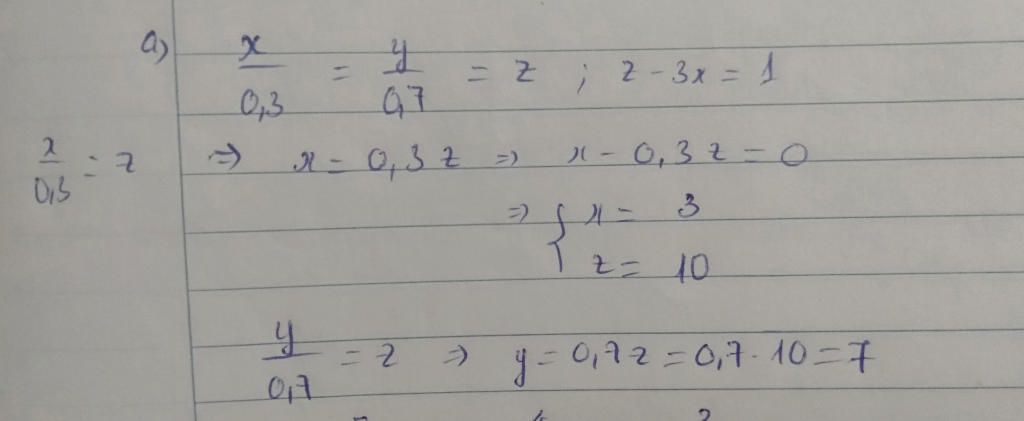 a) x/0,3 = y/0,7 = z ; z - 3x = 1
x/0,3 = z => x = 0,3 z => x - 0,3 z = 0
=> { x = 3
z = 10
y/0,7 = z => y = 0,7 z = 0,7 · 10 = 7